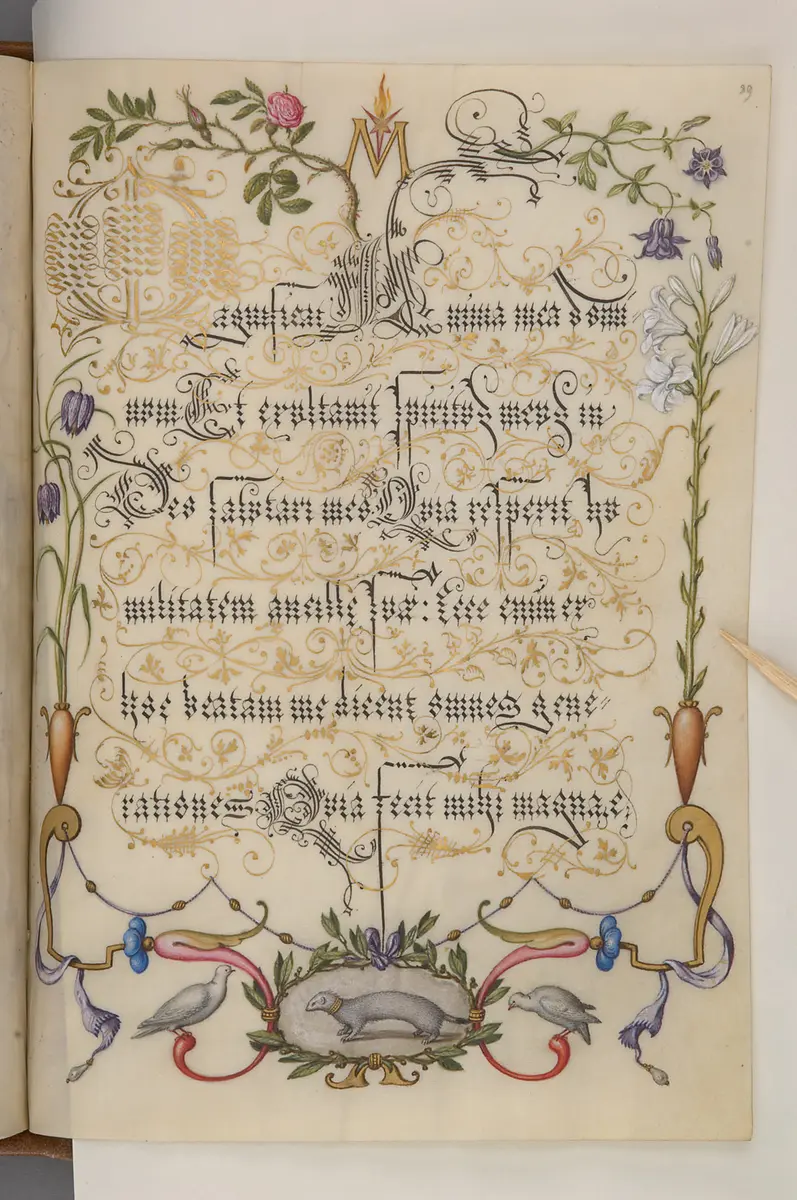 39
M
Magnificat Anima mea domi
nvm. Et exvltauit spiritvs mevs in
Deo salvtari meo Qvia respexit hv
militatem ancillę svæ: Ecce enim ex
hoc beatam me dicent omnes gene=
rationes Qvia fecit mihi magna,